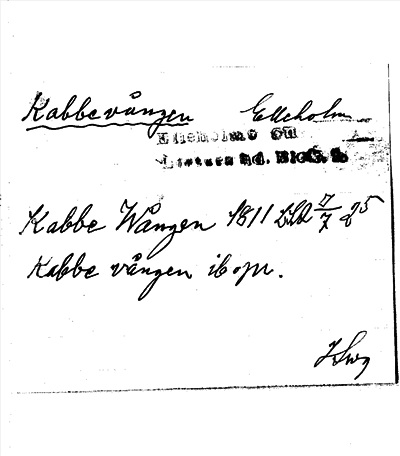 Kabbevången Elleholm
Elleholms sn
Listers hd. Blek. l.
Kabbe Wången 1811 LSA 7/7 25
Kabbe vången ibm.